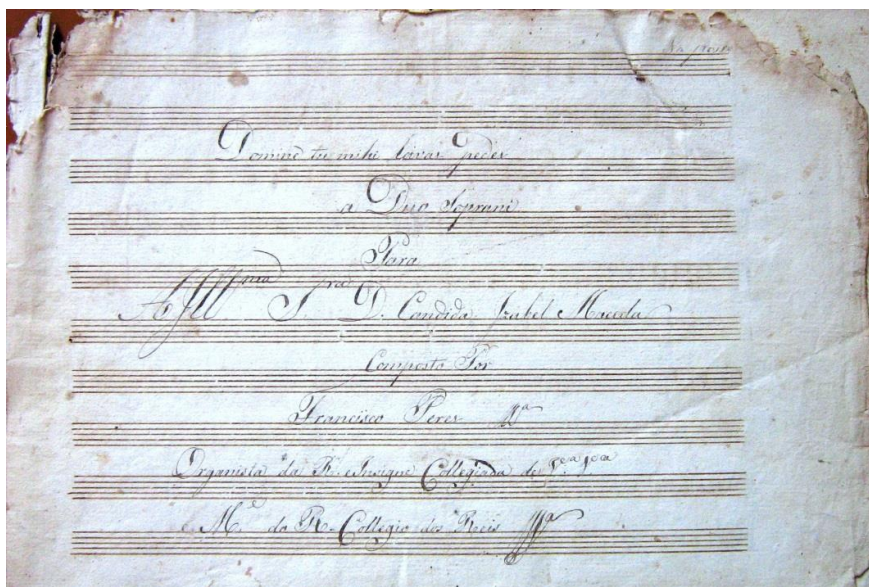 Domine tu mihi lavas pedes
a Duo Soprani
Para
A Ill.ma S.ra D. Candida Izabel Maceda
Composto Por
Francisco Peres
Organista da R. e Insigne Collegiada de
e M.e do R. Collegio dos Reis